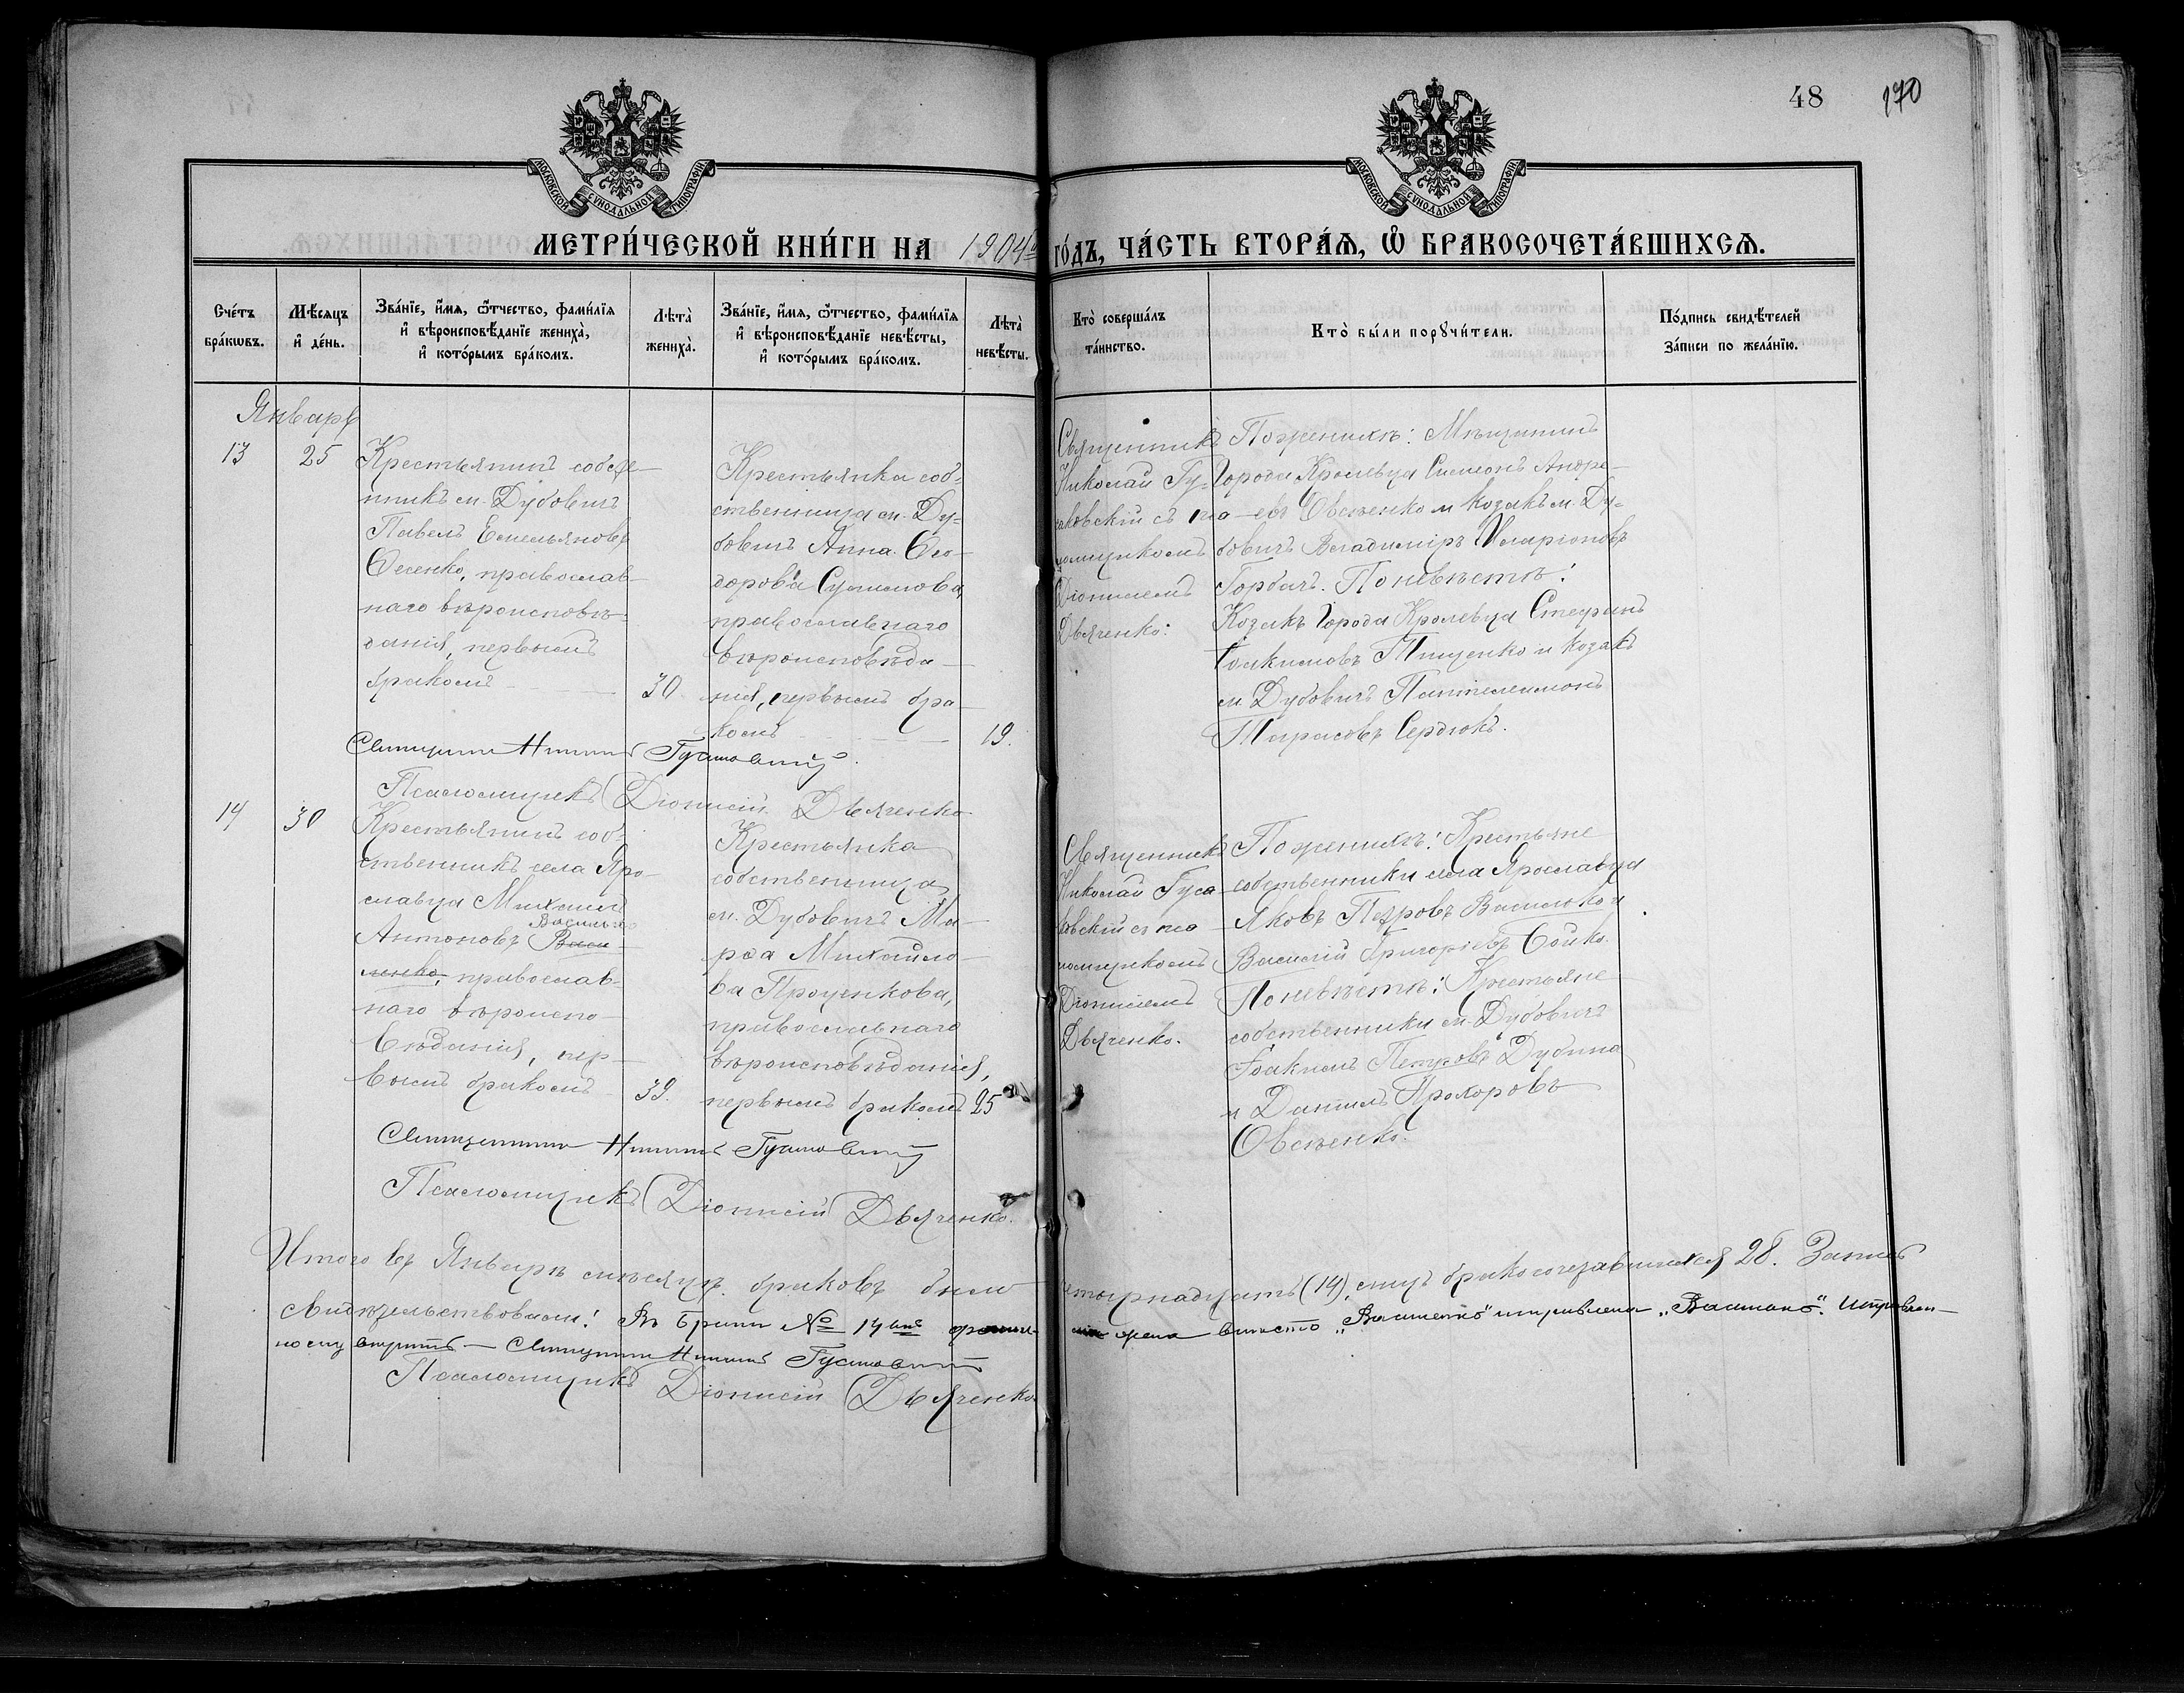 48 170
МОСКОВСКОЙ СѴНОДАЛЬНОЙ ТИПОГРАФІИ
МОСКОВСКОЙ СѴНОДАЛЬНОЙ ТИПОГРАФІИ
МЕТРИ́ЧЕСКОЙ КНИ́ГИ НА 1904й ГО́ДЪ, ЧА́СТЬ ВТОРА́Ѧ, Ѽ БРАКОСОЧЕТА́ВШИХСѦ.
Сче́тъ
бра́кѡвъ.
Мѣ́сѧцъ
и҆ де́нь.
Зва́нїе, и҆́мѧ, ѻ҆́тчество, фами́лїѧ
и҆ вѣроисповѣ́данїе жениха̀,
и҆ кото́рымъ бра́комъ.
Лѣта̀
жениха̀.
Зва́нїе, и҆́мѧ, ѻ҆́тчество, фами́лїѧ
и҆ вѣроисповѣ́данїе невѣ́сты,
и҆ кото́рымъ бра́комъ.
Лѣта̀
невѣ́сты.
Кто̀ соверша́лъ
та́инство.
Кто̀ бы́ли порꙋчи́тели.
По́дпись свидѣ́телей
за́писи по жела́нїю.
Январь
13
25
Крестьянинъ собстве-
нникъ м. Дубовичъ
Павелъ Емельяновъ
Ѳесенко, православ-
наго вѣроисповѣ-
данія, первымъ
бракомъ
30
Крестьянка соб-
ственница м. Ду-
бовичъ Анна Ѳео-
дорова Сулимова,
православнаго
вѣроисповѣда-
нія, первымъ бра-
комъ
19.
Священникъ
Николай Гу-
саковскій съ пса-
ломщикомъ
Діонисіемъ
Дьяченко.
По женихѣ: Мѣщанинъ
Города Кролевца Симеонъ Андре-
евъ Овсѣенко и козакъ м. Ду-
бовичъ Владиміръ Иларіоновъ
Горбач. По невѣстѣ:
Козакъ Города Кролевца Стефанъ
Іоакимовъ Тищенко и козакъ
м. Дубовичъ Пантелеимонъ
Тарасовъ Сердюкъ.
Священникъ Николай Гусаковскій.
Псаломщикъ Діонисій Дьяченко
14
30
Крестьянинъ соб-
ственникъ села Яро-
славца Михаилъ
Антоновъ Васи-
ленко, православ-
наго вѣроиспо-
вѣданія, пер-
вымъ бракомъ
39.
Крестьянка
собственница
м. Дубовичъ Ма-
рѳа Михайло-
ва Проценкова,
православнаго
вѣроисповѣданія,
первымъ бракомъ
25
Священникъ
Николай Гуса-
ковскій съ пса-
ломщикомъ
Діонисіемъ
Дьяченко.
По женихѣ: Крестьяне
собственники села Ярославца
Яковъ Петровъ Василюк и
Василій Григорьевъ Бойко.
По невѣстѣ: Крестьяне
собственники м. Дубовичъ
Іоакимъ Петровъ Дубина
и Даніилъ Прохоровъ
Овсѣенко.
Священникъ Николай Гусаковскій
Псаломщикъ Діонисій Дьяченко.
Итого въ Январѣ мѣсяцѣ браковъ было четырнадцать (14), лицъ бракосочетавшихся 28. Запись
свидѣтельствовали: Въ бракѣ № 14мъ вмѣсто „Василенко“ исправлена Исправлен-
ному вѣрить — Священникъ Николай Гусаковскій
Псаломщикъ Діонисій Дьяченко.